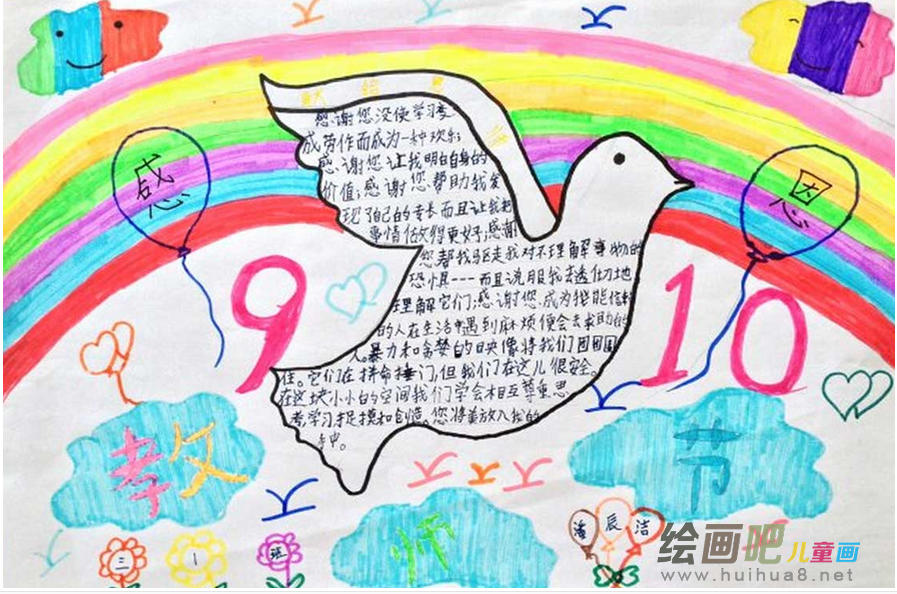 感
恩
9
10
感谢您没使学习变
成劳作而成为一种欢乐;
感谢您让我明白自身的
价值;感谢您帮助我发
现了自己的专长而且让我把
事情做得更好;感谢
您帮我驱走我对不理解事物的
恐惧---而且说服我去透切地
理解它们;感谢您成为我能信赖
的人在生活中遇到麻烦便会去求助的
人。暴力和贪婪的映像将我们团团围
住。它们在拼命捶门,但我们在这儿很安全。
在这块小小的空间我们学会相互尊重思
考,学习捉摸和创造。您将美放入我的
手中。
教
师
节
三 1 班
潘辰洁
绘画吧儿童画
www.huihua8.net